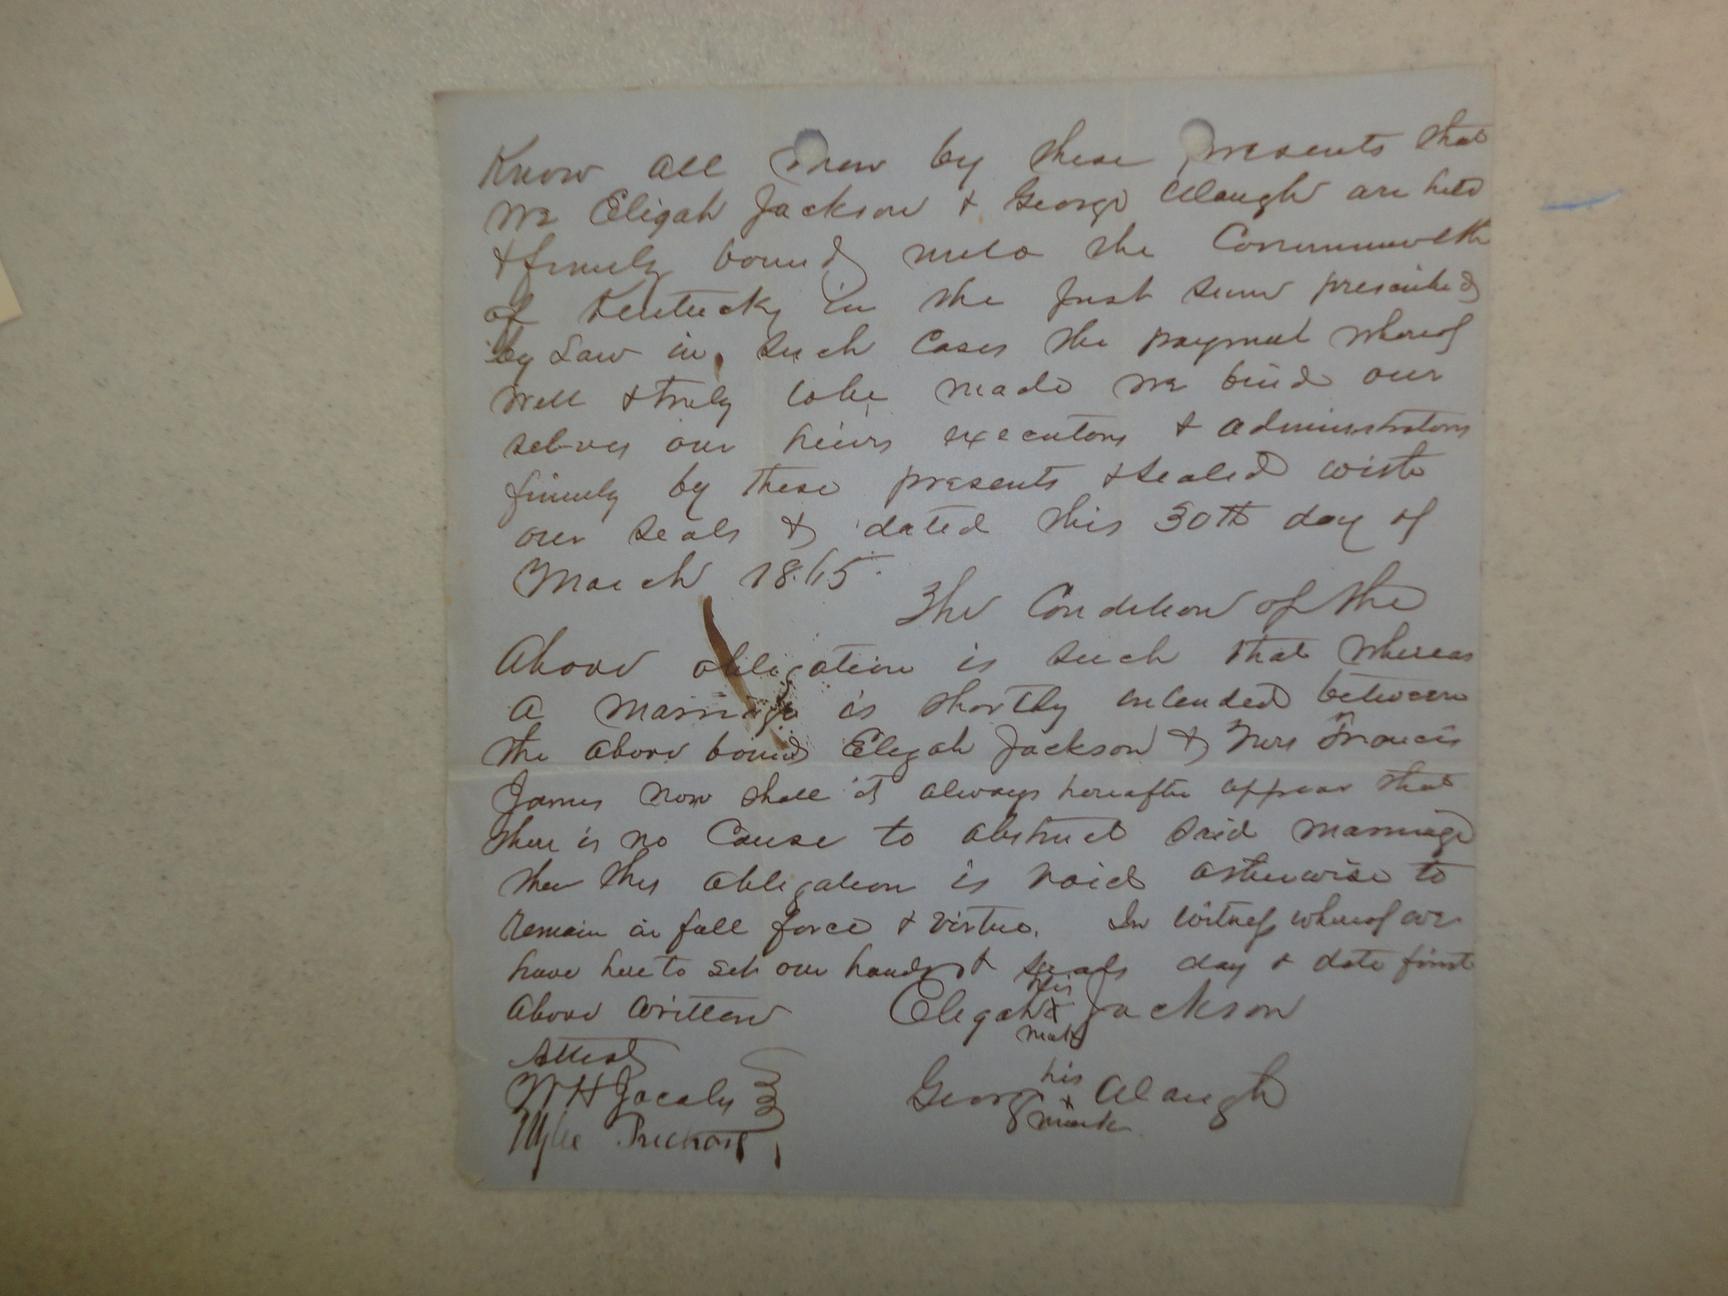 Know all men by these presents that
we Eligah Jackson & George Alaugh are held
& firmly bound unto the Commonwelth
of Kentucky in the Just sum prescribed
by Law in such Cases the payment whereof
Well & truly tobe made we bind our
selves our heirs executors & administrators
firmly by these presents & sealed with
our seals & dated this 30th day of
March 1865.
The Condition of the
Above obligation is such that whereas
A marriage is shortly intended between
the above bound Eligah Jackson & Mrs Francis
James now shall it always hereafter appear that
there is no Cause to obstruct said marriage
then this obligation is void otherwise to
remain in full force & virtue. In witness whereof we
have here to set our hands & seals day & date first
Above written
Eligah his x mark Jackson
Attest
W H Jacoby
George his x mark Alaugh
Wylie